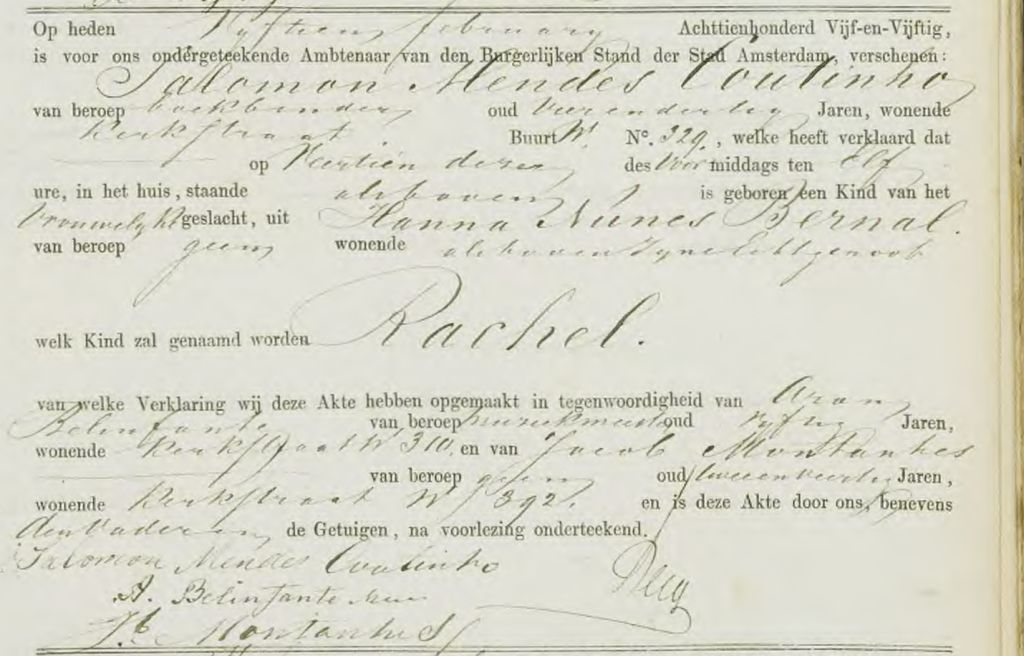 Op heden Vyftien february Achttienhonderd Vijf-en-Vijftig,
is voor ons ondergeteekende Ambtenaar van den Burgerlijken Stand der Stad Amsterdam, verschenen:
Salomon Mendes Coutinho
van beroep boekbinder oud Vierendertig Jaren, wonende
Kerkstraat Buurt W. N°. 329, welke heeft verklaard dat
op Veertien dezer des Voor middags ten Elf
ure, in het huis, staande als boven is geboren een Kind van het
Vrouwelyk geslacht, uit Hanna Nunes Bernal.
van beroep geen wonende als boven Zyne Echtgenoot
welk Kind zal genaamd worden Rachel.
van welke Verklaring wij deze Akte hebben opgemaakt in tegenwoordigheid van Aron
Belinfante van beroep muziekmeester oud Vyftig Jaren,
wonende Kerkstraat W 310, en van Jacob Montanhes
van beroep geen oud tweeenveertig Jaren,
wonende Kerkstraat W 392. en is deze Akte door ons, benevens
den Vader en de Getuigen, na voorlezing onderteekend.
Salomon Mendes Coutinho
A. Belinfante
Jb Montanhes